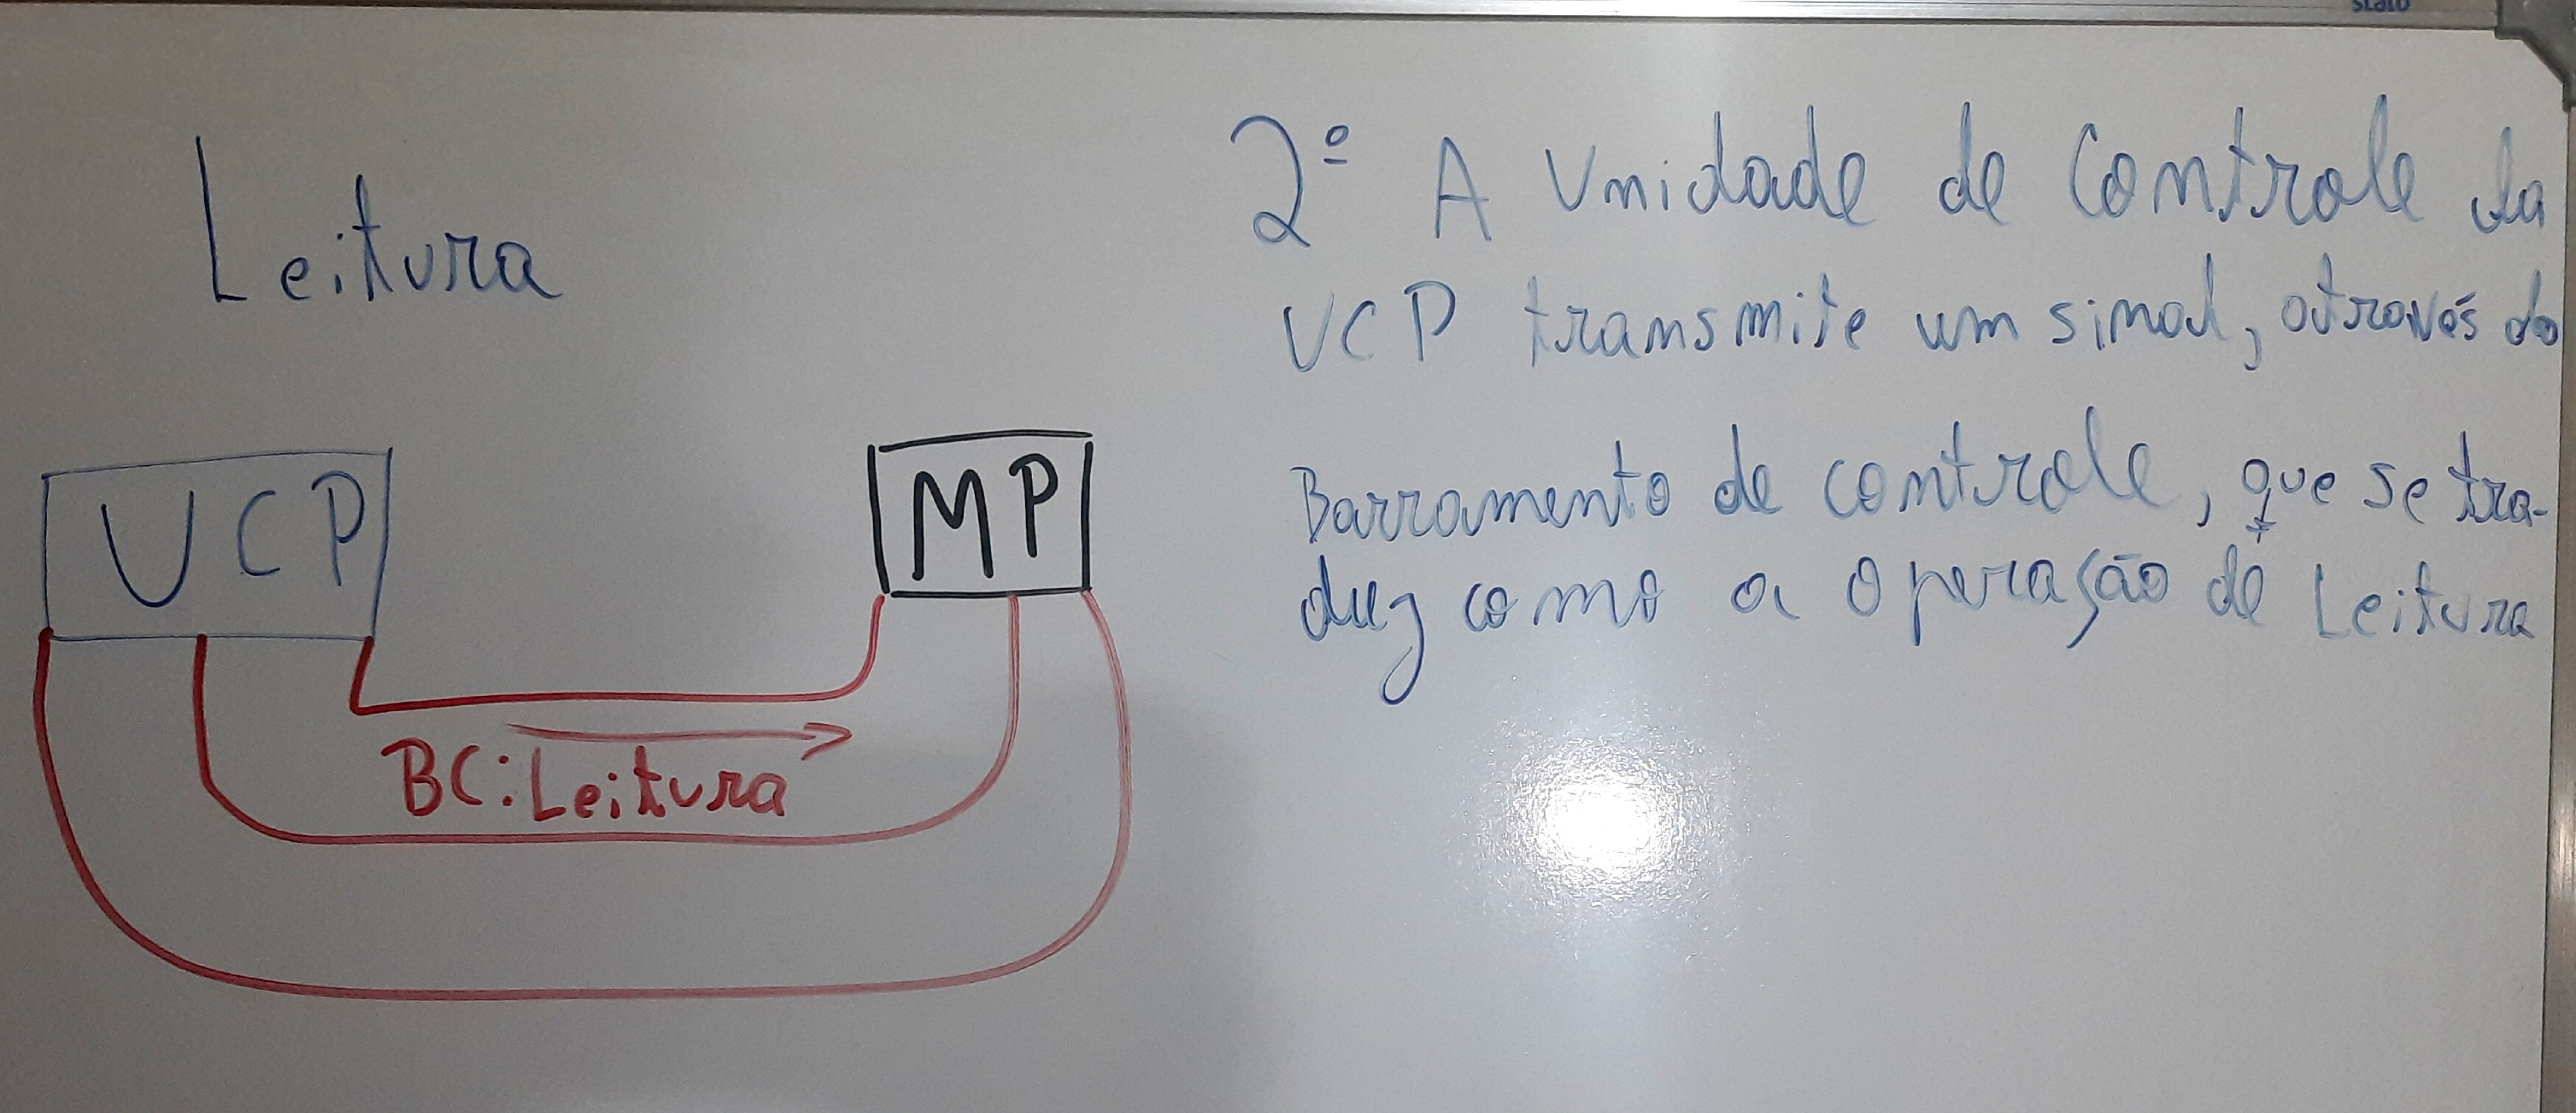 Leitura
UCP
MP
BC: Leitura
2º A Unidade de Controle da
UCP transmite um sinal, através do
Barramento de controle, que se tra-
duz como a operação de Leitura